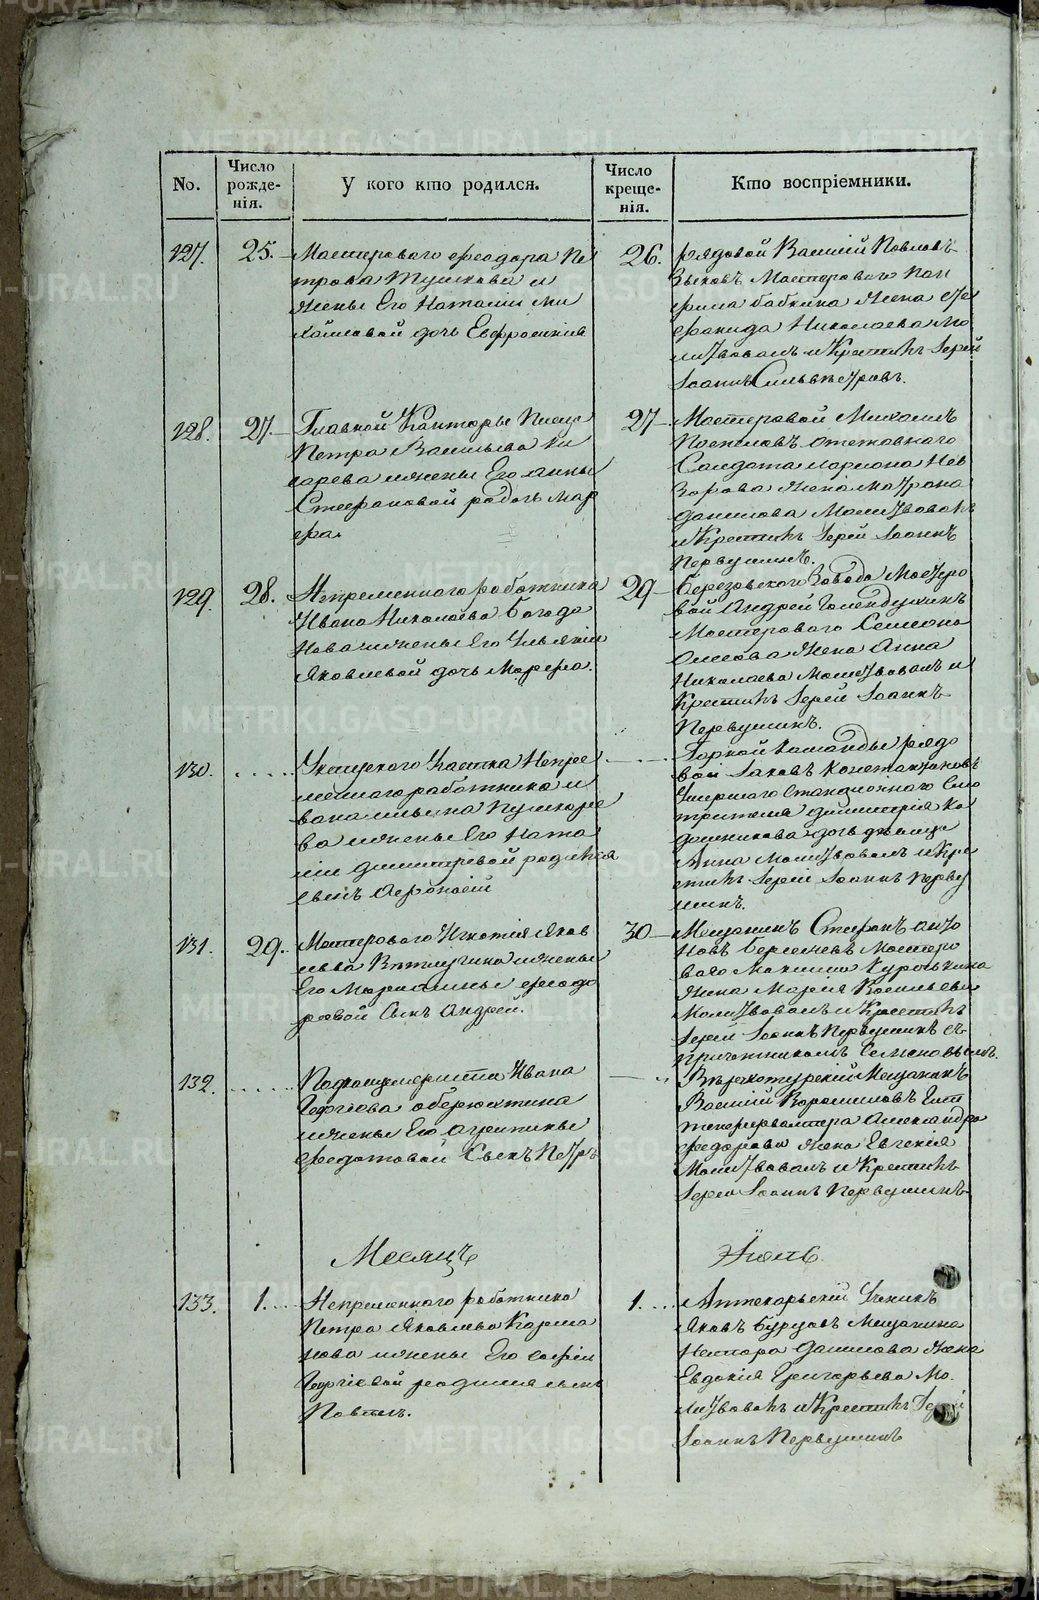 No.
Число рожде-нія.
У кого кто родился.
Число креще-нія.
Кто воспріемники.
127.
25.
Мастероваго Феодора Пе
трова Тушкова и
жены Его Наталіи Ми
хайловой дочь Евфросинія
26.
рядовой Василій Павловъ
Зыковъ Мастероваго Пор
фила бабкина жена Сте
фанида Николаева Мо
литвовалъ и Крестилъ Іерей
Іоаннъ Сильвестровъ.
128.
27.
Главной Канторы Писца
Петра Васильева
и жены Его Анны
Стефановой родось Мар
фа.
27
Мастеровой Михаилъ
Поспеловъ отставнаго
Солдата Лариона Нев
зорова жена Матрона
Данилова Молитвовалъ
и Крестилъ Іерей Іоаннъ
Первушинъ.
129.
28.
Непременнаго работника
Ивана Николаева Богода
нова и жены Его Ульяніи
Яковлевой дочь Марфа.
29
Березовскаго Завода Мастеро
вой Андрей Голендухинъ
Мастероваго Семена
жена Анна
Николаева Молитвовалъ и
Крестилъ Іерей Іоаннъ
Первушинъ.
130.
Уктусскаго Участка Непре
меннаго работника И
вана Ильина Пушкаре
ва и жены Его Ната
ліи Димитревой родился
сынъ Афонасій
Горной Команды рядо
вой Іаковъ Константиновъ
Умершаго Станціоннаго Смо
трителя Димитрія Ка
дошникова дочь девица
Анна Молитвовалъ и Кре
стилъ Іерей Іоаннъ Перву
шинъ.
131.
29.
Мастероваго Игнатія Яков
лева Ветлугина и жены
Его Маріамны Феодо
ровой Сынъ Андрей.
30
Мещанинъ Стефанъ Анто
новъ Мастеро
ваго Максима Курочкина
Жена Марія Васильева
Молитвовалъ и Крестилъ
Іерей Іоаннъ Первушинъ съ
причетникомъ Семеновымъ.
132.
Ивана
Георгіева оберюхтина
и жены Его Агрипины
Федотовой Сынъ Петръ
Верхотурскій Мещанинъ
Василій Ворошиловъ Шит
тенфервалтера Александра
Федорова жена Евгенія
Молитвовалъ и Крестилъ
Іерей Іоаннъ Первушинъ
Месяцъ
Іюль
133.
1.
Непременнаго работника
Петра Яковлева Карма
нова и жены Его Софіи
Георгіевой родился сынъ
Павелъ.
1.
Аптекарьскій Ученикъ
Яковъ Бурцовъ Мещанина
Нестора Данилова Жена
Евдокія Григорьева Мо
литвовалъ и Крестилъ Іерей
Іоаннъ Первушинъ
METRIKI.GASO-URAL.RU